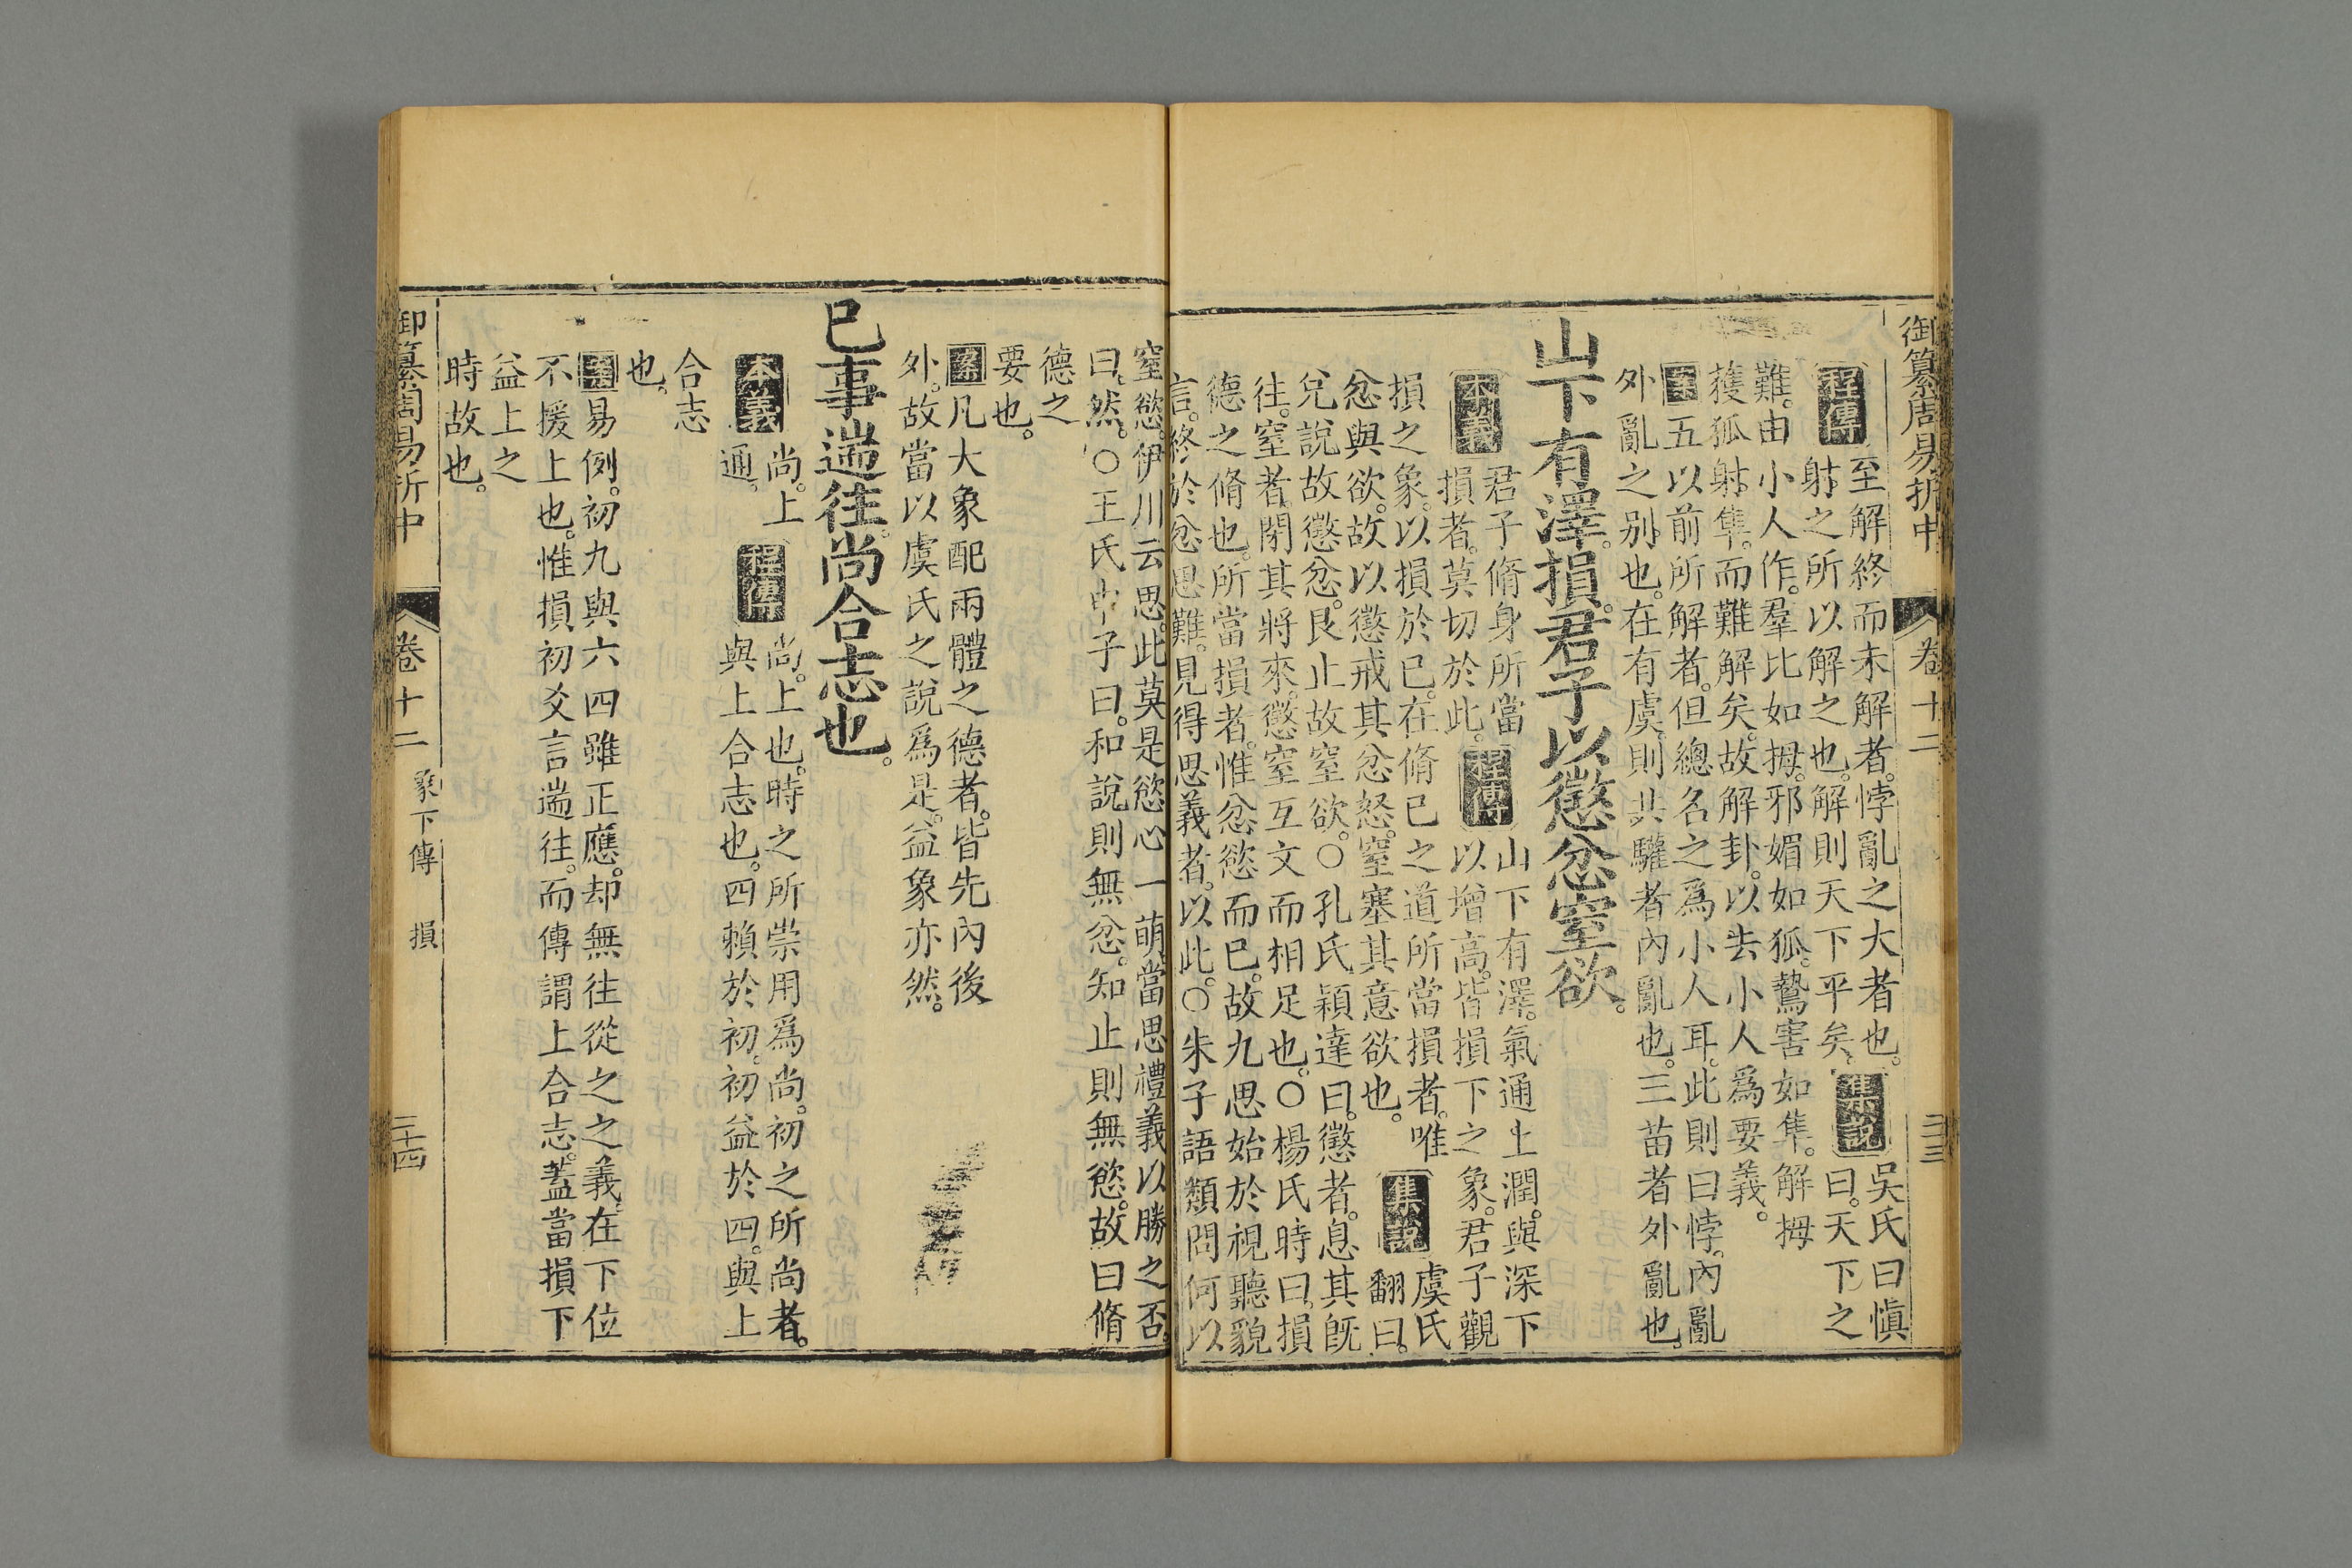 御纂周易折中 卷十二 三十三
程傳 至解終而未解者悖亂之大者也
射之所以解之也解則天下平矣 集說 吳氏曰慎
曰天下之
難由小人作羣比如拇邪媚如狐鷙害如隼解拇
獲狐射隼而難解矣故解卦以去小人爲要義
案 五以前所解者但總名之爲小人耳此則曰悖內亂
外亂之别也在有虞則共驩者內亂也三苗者外亂也
山下有澤損君子以懲忿窒欲
本義 君子脩身所當
損者莫切於此 程傳 山下有澤氣通上潤與深下
以增高皆損下之象君子觀
損之象以損於已在脩已之道所當損者唯
忿與欲故以懲戒其忿怒窒塞其意欲也 集說 虞氏
翻曰
兌說故懲忿艮止故窒欲○孔氏穎達曰懲者息其旣
往窒者閉其將來懲窒互文而相足也○楊氏時曰損
德之脩也所當損者惟忿慾而已故九思始於視聽貌
言終於忿思難見得思義者以此○朱子語類問何以
窒慾伊川云思此莫是慾心一萌當思禮義以勝之否
曰然○王氏申子曰和說則無忿知止則無慾故曰脩
德之
要也
案 凡大象配兩體之德者皆先內後
外故當以虞氏之說爲是益象亦然
已事遄往尚合志也
本義 尚上
通 程傳 尚上也時之所崇用爲尚初之所尚者
與上合志也四賴於初初益於四與上
合志
也
案 易例初九與六四雖正應却無往從之之義在下位
不援上也惟損初爻言遄往而傳謂上合志蓋當損下
益上之
時故也
御纂周易折中 卷十二 象下傳 損 三十四